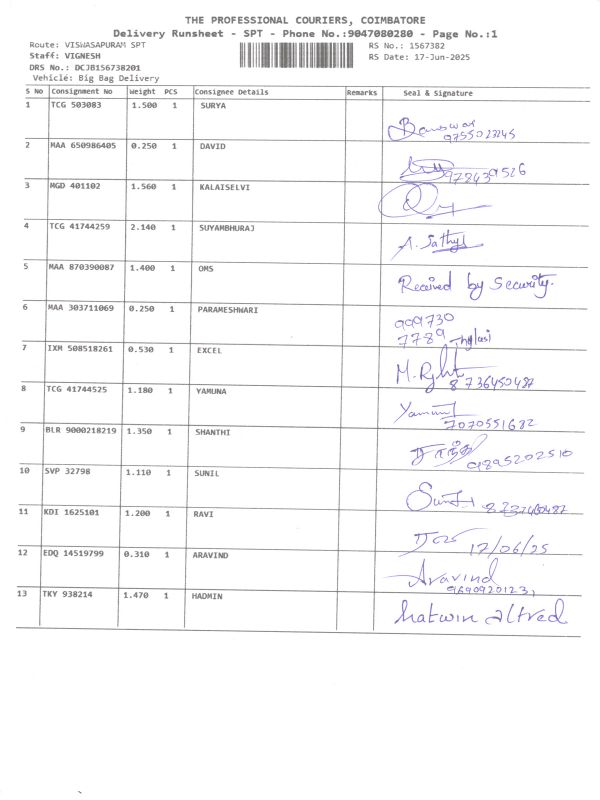 THE PROFESSIONAL COURIERS, COIMBATORE
Delivery Runsheet - SPT - Phone No.:9047080280 - Page No.:1
Route: VISWASAPURAM SPT RS No.: 1567382
Staff: VIGNESH RS Date: 17-Jun-2025
DRS No.: DCJB156738201
Vehiclé: Big Bag Delivery
S No Consignment No Weight PCS Consignee Details Remarks Seal & Signature
1 TCG 503083 1.500 1 SURYA
9755023245
2 MAA 650986405 0.250 1 DAVID
3 MGD 401102 1.560 1 KALAISELVI
4 TCG 41744259 2.140 1 SUYAMBHURAJ A. Sathya
5 MAA 870390087 1.400 1 OMS Received by Security.
6 MAA 303711069 0.250 1 PARAMESHWARI 999730
7789
7 IXM 508518261 0.530 1 EXCEL
8736450487
8 TCG 41744525 1.180 1 YAMUNA
7070551682
9 BLR 9000218219 1.350 1 SHANTHI
9895202510
10 SVP 32798 1.110 1 SUNIL
11 KDI 1625101 1.200 1 RAVI 17/06/25
12 EDQ 14519799 0.310 1 ARAVIND Aravind
13 TKY 938214 1.470 1 HADMIN hatwin alfred